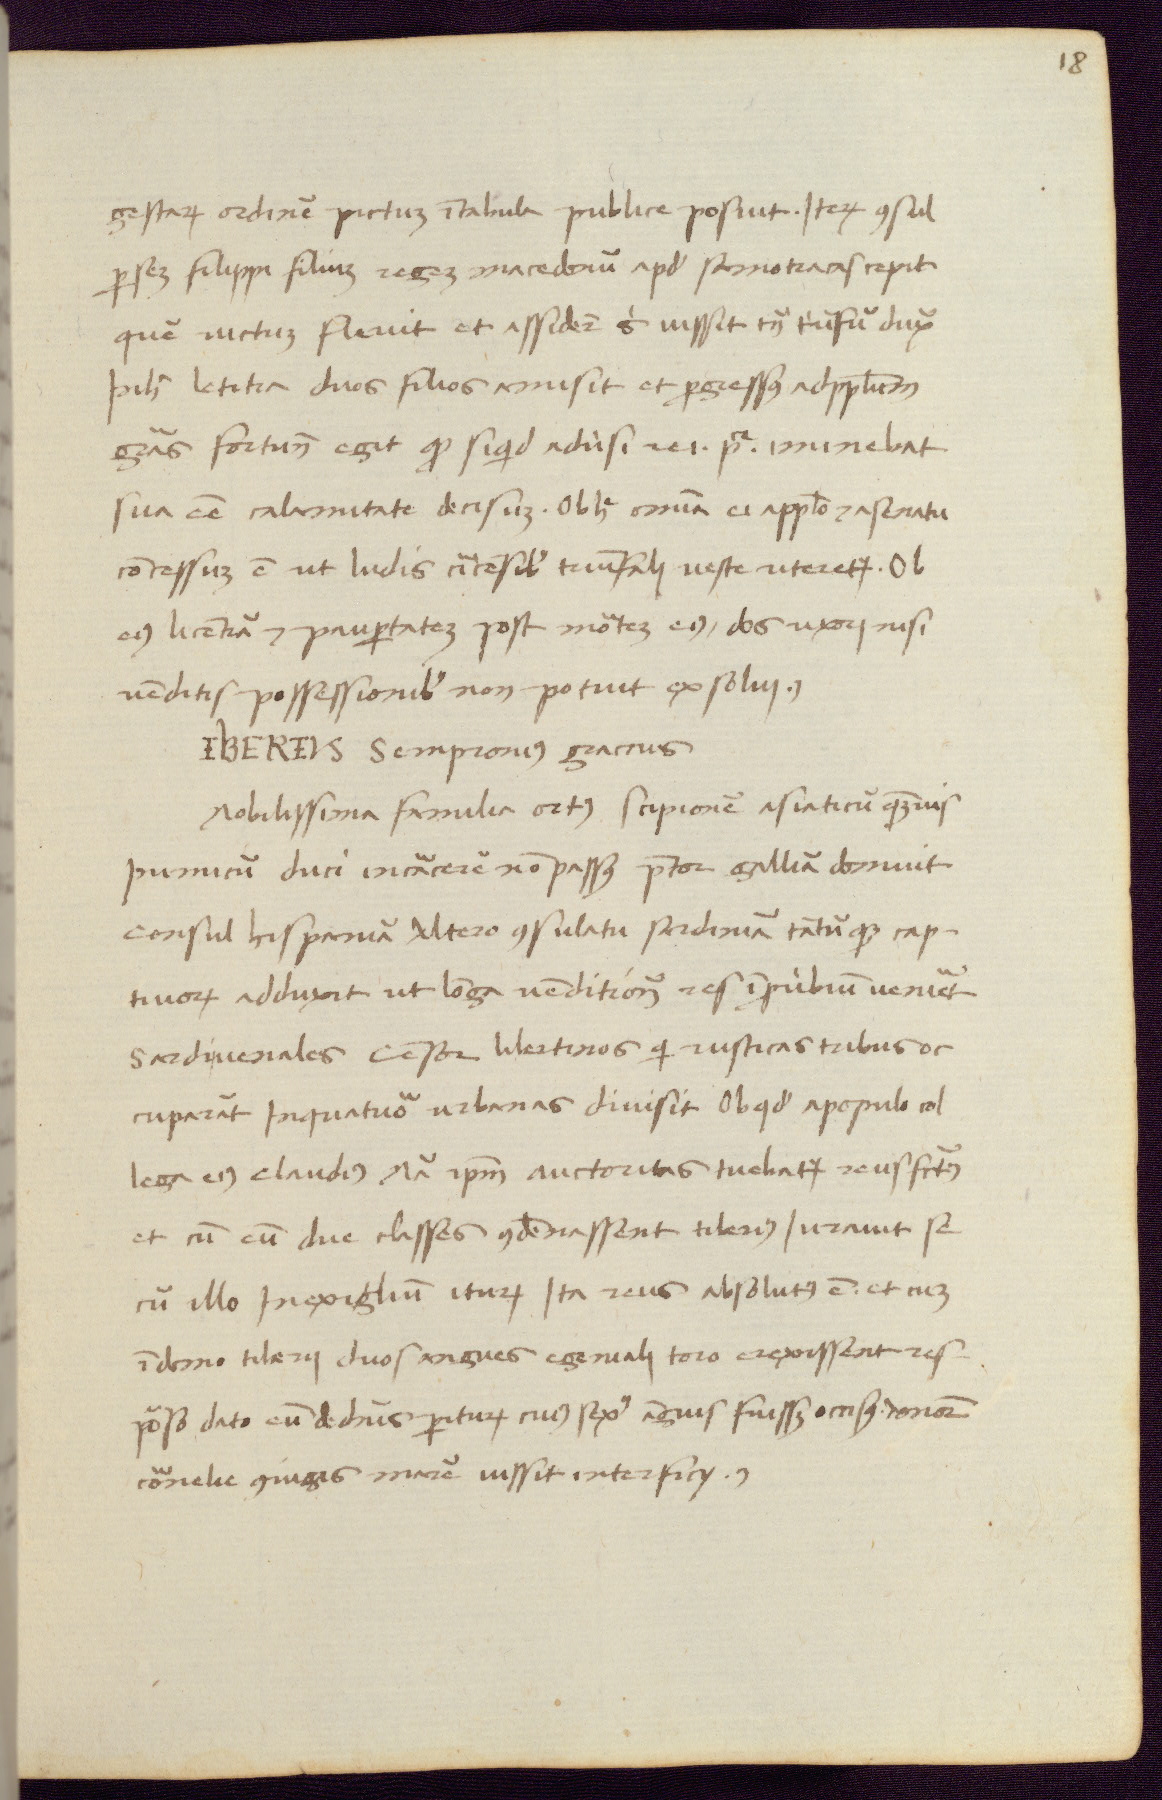 18
gestaꝝ ordinē pictuꝫ ītabula publice posiuit. Iteꝝ ꝯsul
ꝑseꝫ filippi filiuꝫ regeꝫ macedonū apđ samotracas cepit
quē uictuꝫ fleuit et assider̄ s̄ iussit tn̄ triūfū dux̄
Inħ letitia duos filios amisit et ꝓgressꝰ adpp̄lum
grās fortun̄ egit ꝙ siqͥd aduͥsi rei. p̄. iminebat
sua eē calamitate decisuꝫ. Obħ omīa ei appl̄o ⁊ asenatu
cōcessuꝫ ē ut ludis circēsibꝰ triūfali ueste uteretꝛ. Ob
eiꝰ licentiā ⁊ pauꝑtateꝫ post mōteꝫ eiꝰ, dos uxori nisi
uēditis possessionibꝰ non potuit exsolui.
IBERIVS Semproniꝰ graccus
Nobilissima familia ortꝰ scipionē asiaticū quāuis
Inimicū duci incācerē nō passꝰ p̄tor galliā domuit
Consul hispaniā Altero ꝯsulatu sardiniā tātūqꝫ cap-
tiuoꝝ adduxit ut lōga uēditiōn̄ res ī ꝓuͥbiū ueniēt
Sardi uenales Cēsor libertinos qi rusticas tribus oc
cuparāt Inquatuōr urbanas diuisit Ob qđ apopulo col
lega eiꝰ Claudiꝰ Nā ipm̄ auctoritas tuebatꝛ reus fctꝰ
et cū eū due classes ꝯdēnassent tiberiꝰ Iurauit se
cū illo Inexigliū ituꝝ Ita reus absolutꝰ ē. et cuꝫ
ī domo tiberii duos angues egeniali toro erexissent res-
pōso dato eū de dn̄is ꝑituꝝ cuiꝰ sexꝰ āguis fuissꝫ occisꝰ.
cōrnelie ꝯiugis marē iussit interfici.